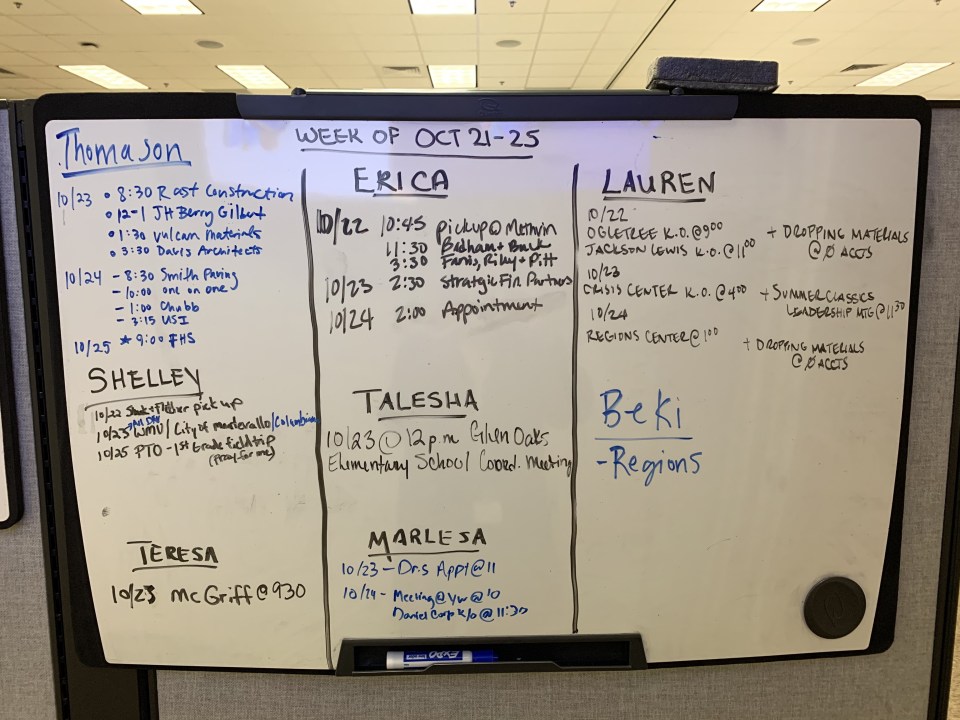 WEEK OF OCT 21-25
Thomason
10/23 • 8:30 Rast Construction
• 12-1 JH Berry Gilbert
• 1:30 Vulcan Materials
• 3:30 Davis Architects
10/24 - 8:30 Smith Paving
- 10:00 one on one
- 1:00 Chubb
- 3:15 USI
10/25 ★ 9:00 FHS
SHELLEY
10/22 pick up
10/23 All Day WMU / City of
10/25 PTO - 1st Grade field trip
(Pray for me)
TERESA
10/23 McGriff @ 930
ERICA
10/22 10:45 pickup @ Methvin
11:30
3:30 Faris, Riley + Pitt
10/23 2:30 Stratgic Fin Partners
10/24 2:00 Appointment
TALESHA
10/23 @ 12 p.m Glen Oaks
Elementary School Coord. Meeting
MARLESA
10/23 - Dr.s Appt @ 11
10/24 - Meeting @ YW @ 10
Daniel Corp K/O @ 11:30
LAUREN
10/22
OGLETREE K.O. @ 9:00
JACKSON LEWIS K.O. @ 11:00
+ DROPPING MATERIALS
@ Ø ACCTS
10/23
CRISIS CENTER K.O. @ 4:00
+ SUMMERCLASSICS
LEADERSHIP MTG @ 11:30
10/24
REGIONS CENTER @ 1:00
+ DROPPING MATERIALS
@ Ø ACCTS
Beki
- Regions
EXPO